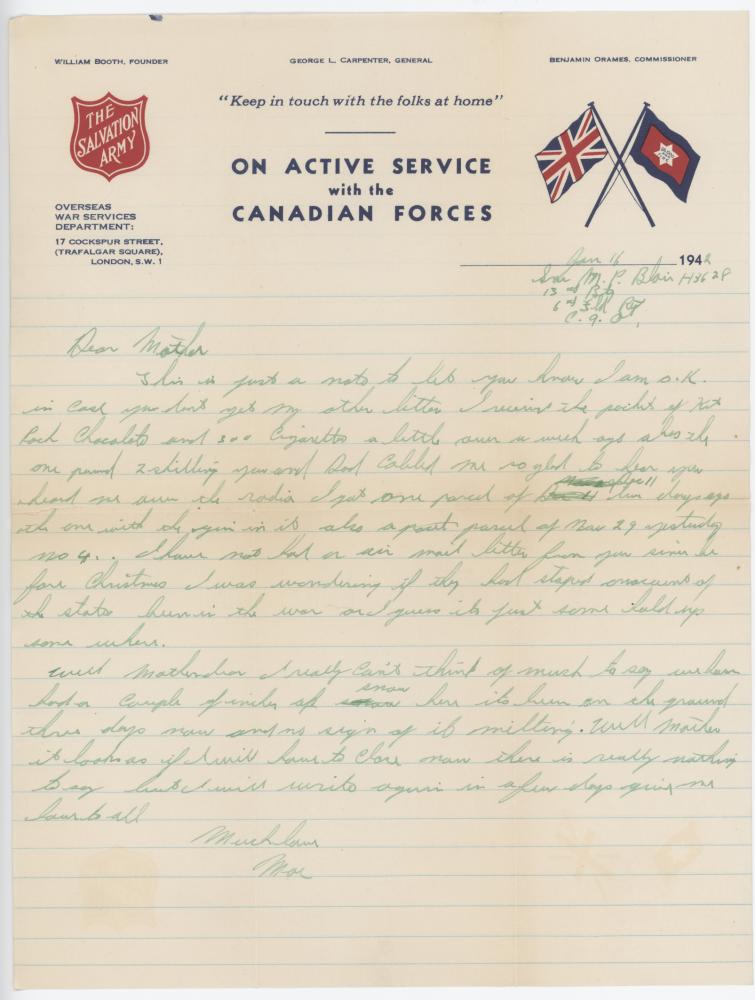 WILLIAM BOOTH, FOUNDER
GEORGE L. CARPENTER, GENERAL
BENJAMIN ORAMES, COMMISSIONER
THE
SALVATION
ARMY
"Keep in touch with the folks at home"
ON ACTIVE SERVICE
with the
CANADIAN FORCES
OVERSEAS
WAR SERVICES
DEPARTMENT:
17 COCKSPUR STREET,
(TRAFALGAR SQUARE),
LONDON, S.W. 1
Jan 16 1942
M. P. Blair H3628
13 Bty
6 Fld
C. A. O.
Dear Mother
This is just a note to let you know I am O.K.
in case you dont get my other letter I received the packet of
Chocolate and 300 Cigarettes a little over a week ago also the
one pound 2 shilling you and Dad cabled me so glad to hear you
heard me over the radio I got one parcel of few days ago
the one with the gum in it also a post parcel of Nov 29 yesterday
no 4. I have not had an air mail letter from you since be
fore Christmas I was wondering if they had stoped on account of
the states been in the war or I guess its just some hold up
some where.
Well Mother dear I really can't think of much to say we have
had a couple of inches of snow here its been on the ground
three days now and no sign of it melting. Well Mother
it looks as if I will have to close now there is really nothing
to say but I will write again in a few days give my
love to all
Much love
Moe